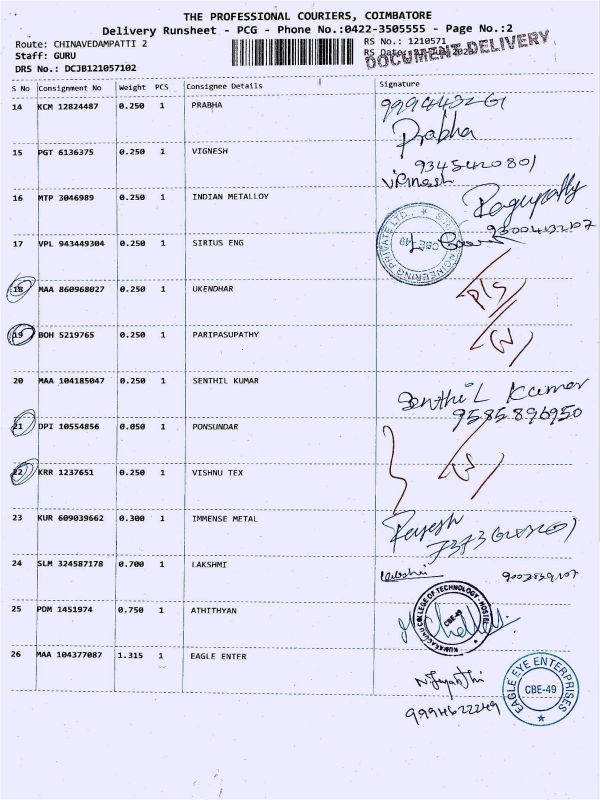 THE PROFESSIONAL COURIERS, COIMBATORE
Delivery Runsheet - PCG - Phone No.:0422-3505555 - Page No.:2
Route: CHINAVEDAMPATTI 2
RS No.: 1210571
Staff: GURU
RS Date:
DOCUMENT DELIVERY
DRS No.: DCJB121057102
S No Consignment No Weight PCS Consignee Details Signature
14 KCM 12824487 0.250 1 PRABHA
Prabha
15 PGT 6136375 0.250 1 VIGNESH
9345420801
16 MTP 3046989 0.250 1 INDIAN METALLOY
17 VPL 943449304 0.250 1 SIRIUS ENG
ENGINEERING PRIVATE LTD.,
CBE-49
18 MAA 860968027 0.250 1 UKENDHAR
19 BOH 5219765 0.250 1 PARIPASUPATHY
20 MAA 104185047 0.250 1 SENTHIL KUMAR
Senthil Kumar
9585896950
21 DPI 10554856 0.050 1 PONSUNDAR
22 KRR 1237651 0.250 1 VISHNU TEX
23 KUR 609039662 0.300 1 IMMENSE METAL
24 SLM 324587178 0.700 1 LAKSHMI
25 PDM 1451974 0.750 1 ATHITHYAN
COLLEGE OF TECHNOLOGY-HOSTEL
CBE-49
26 MAA 104377087 1.315 1 EAGLE ENTER
9994622249
EAGLE EYE ENTERPRISES
CBE-49